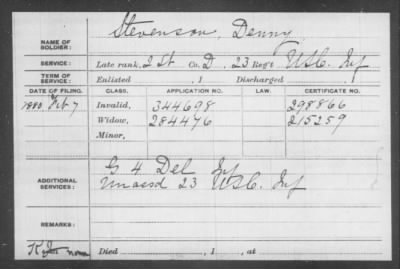 NAME OF SOLDIER: Stevenson, Denny
SERVICE: Late rank, 2 St Co. D, 23 Reg't U.S.C. Inf
TERM OF SERVICE: Enlisted , 1 Discharged , 1
DATE OF FILING. CLASS. APPLICATION NO. LAW. CERTIFICATE NO.
1880 Feb 7 Invalid, 344698 298866
Widow, 284476 215259
Minor,
ADDITIONAL SERVICES: G 4 Del Inf
Unassd 23 U.S.C. Inf
REMARKS:
Died , 1 , at